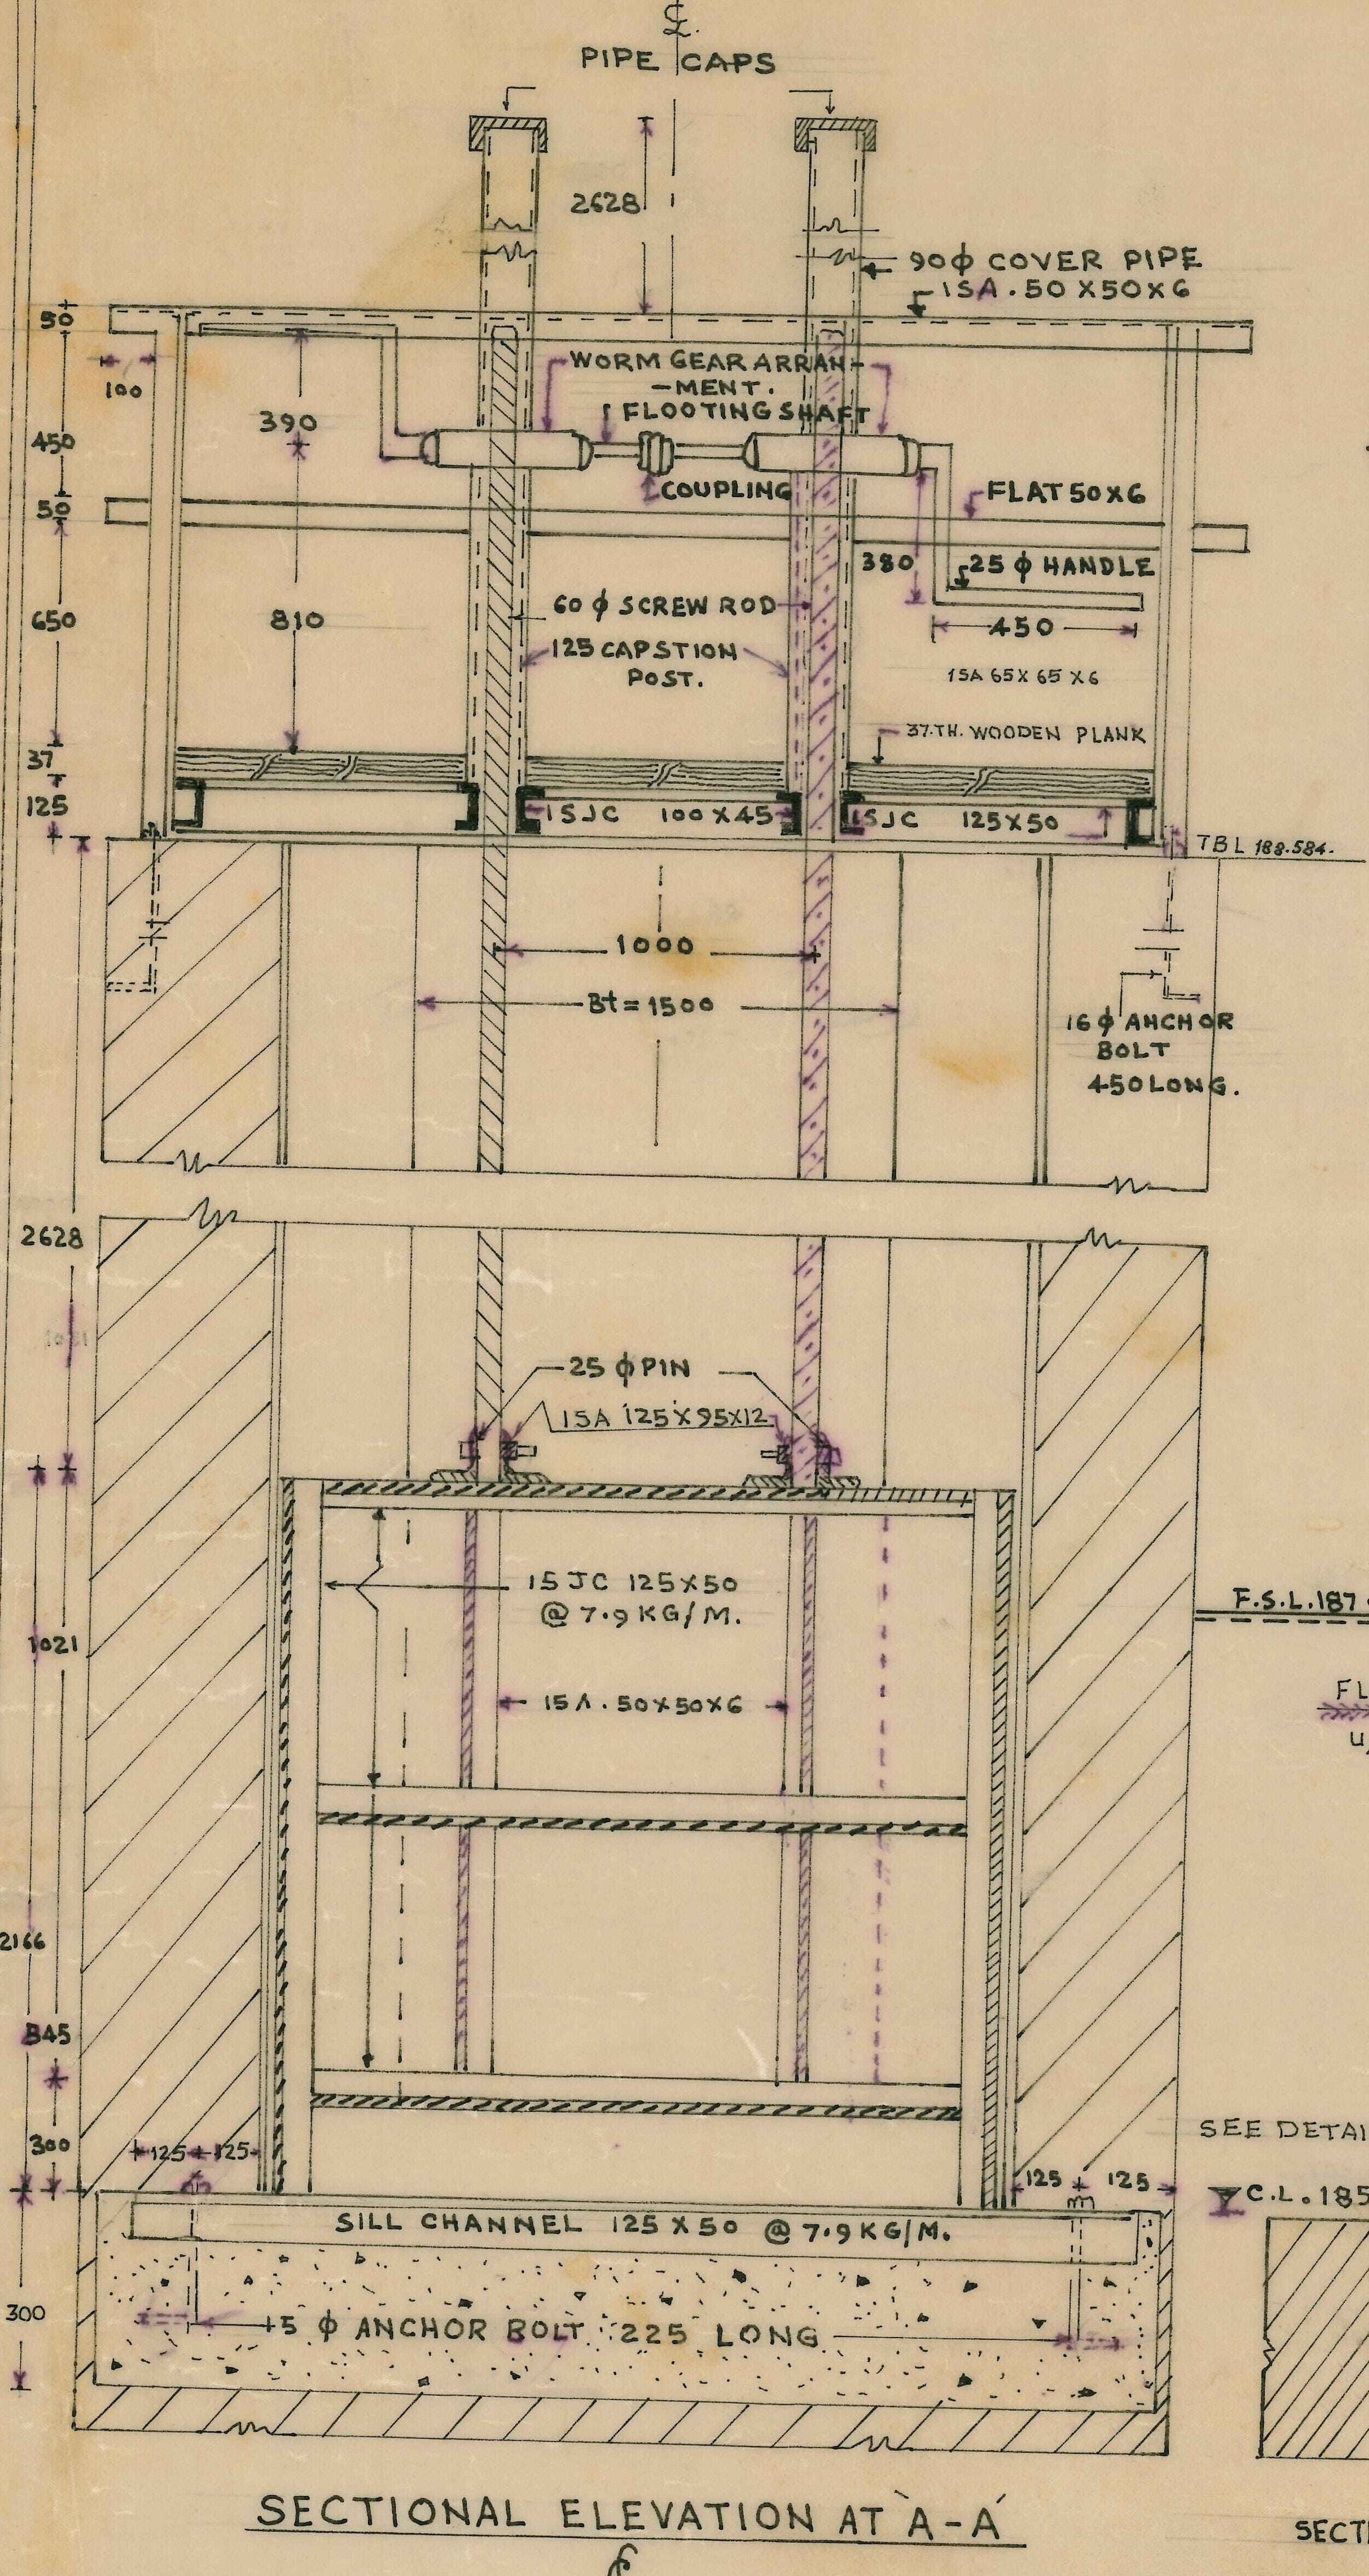 ℄
PIPE CAPS
2628
90ϕ COVER PIPE
ISA . 50 X50X6
50
100
WORM GEAR ARRAN-
-MENT.
FLOOTING SHAFT
390
450
COUPLING
FLAT 50X6
50
380
25 ϕ HANDLE
60 ϕ SCREW ROD
650
810
450
125 CAPSTION
POST.
ISA 65X 65 X6
37.TH. WOODEN PLANK
37
125
ISJC 100X45
ISJC 125X50
TBL 188.584.
1000
Bt=1500
16 ϕ ANCHOR
BOLT
450 LONG.
2628
1021
25 ϕ PIN
ISA 125X95X12
ISJC 125X50
@ 7.9 KG/M.
F.S.L.187
1021
ISA . 50X50X6
FL
U
2166
845
SEE DETAI
300
125 125
125 125
C.L.185
SILL CHANNEL 125X50 @ 7.9KG/M.
300
ϕ ANCHOR BOLT 225 LONG
SECTIONAL ELEVATION AT À-Á
SECTI